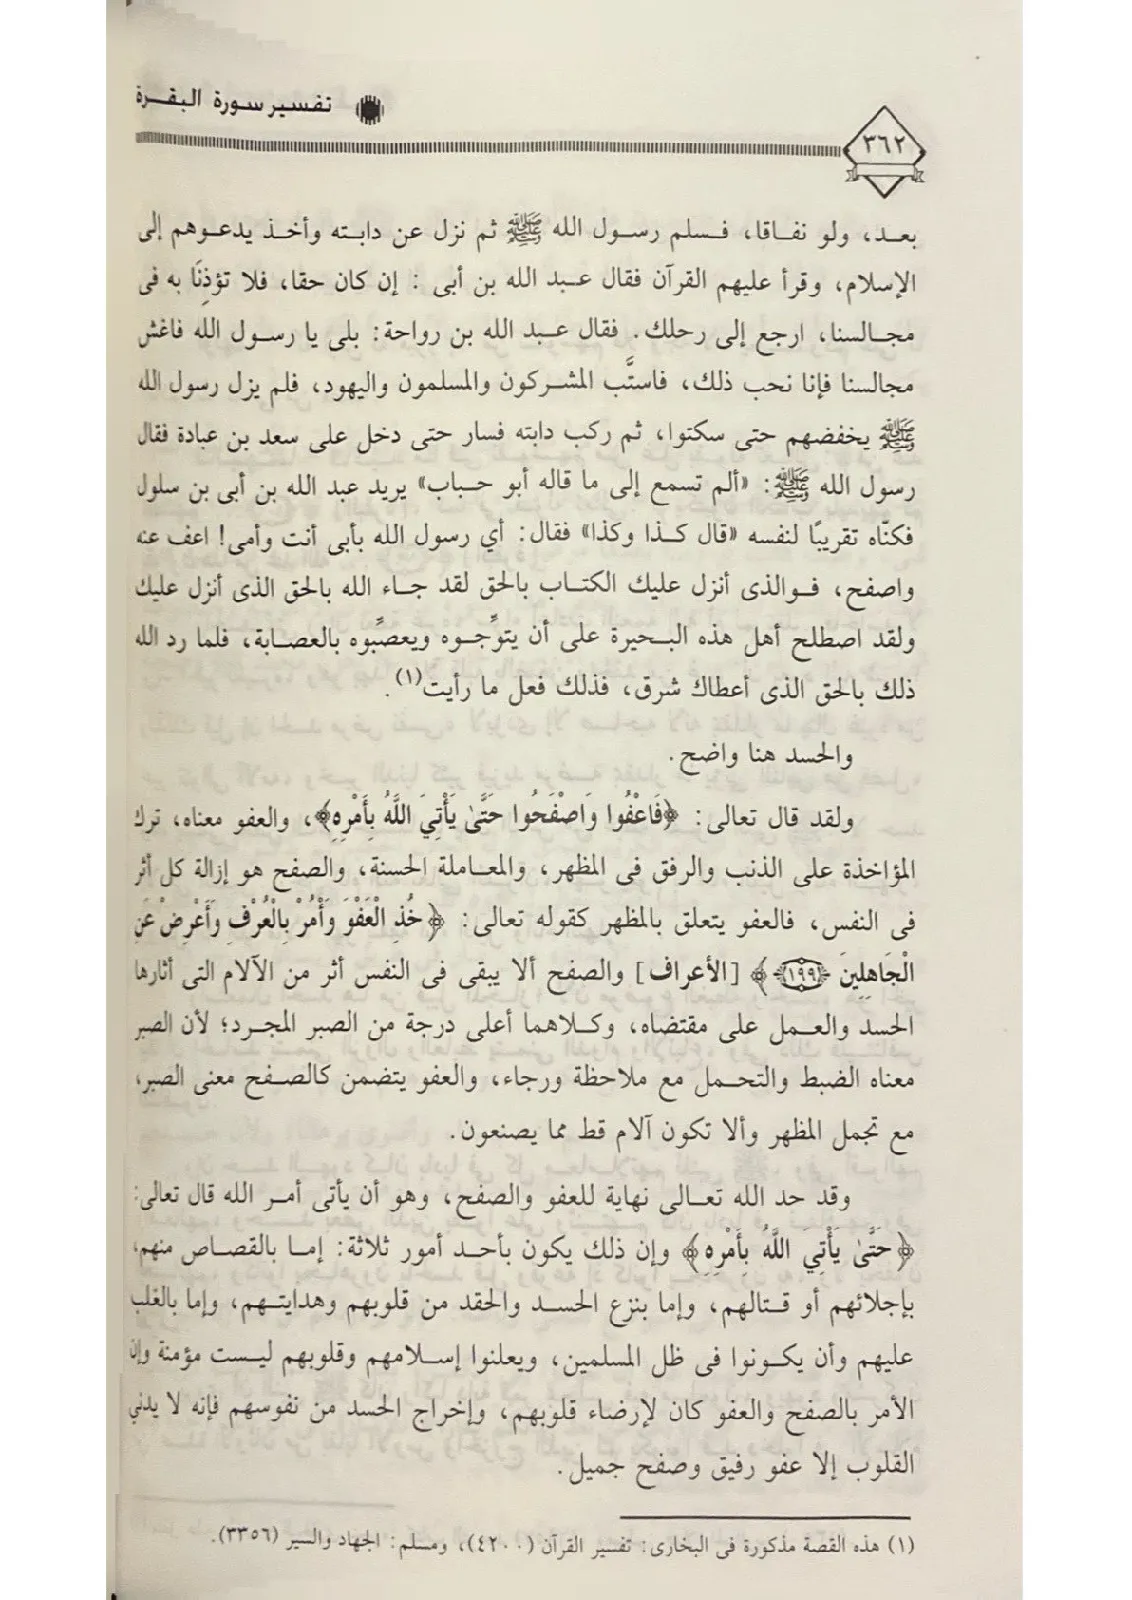 تفسير سورة البقرة
٣٦٢
بعد، ولو نفاقا، فسلم رسول الله ﷺ ثم نزل عن دابته وأخذ يدعوهم إلى
الإسلام، وقرأ عليهم القرآن فقال عبد الله بن أبى : إن كان حقا، فلا تؤذنَا به فى
مجالسنا، ارجع إلى رحلك. فقال عبد الله بن رواحة: بلى يا رسول الله فاغش
مجالسنا فإنا نحب ذلك، فاستَّب المشركون والمسلمون واليهود، فلم يزل رسول الله
ﷺ يخفضهم حتى سكتوا، ثم ركب دابته فسار حتى دخل على سعد بن عبادة فقال
رسول الله ﷺ: «ألم تسمع إلى ما قاله أبو حباب» يريد عبد الله بن أبى بن سلول
فكنّاه تقريبًا لنفسه «قال كذا وكذا» فقال: أي رسول الله بأبى أنت وأمى! اعف عنه
واصفح، فوالذى أنزل عليك الكتاب بالحق لقد جاء الله بالحق الذى أنزل عليك
ولقد اصطلح أهل هذه البحيرة على أن يتوِّجوه ويعصبِّوه بالعصابة، فلما رد الله
ذلك بالحق الذى أعطاك شرق، فذلك فعل ما رأيت(١).
والحسد هنا واضح.
ولقد قال تعالى: ﴿فَاعْفُوا وَاصْفَحُوا حَتَّىٰ يَأْتِيَ اللَّهُ بِأَمْرِهِ﴾، والعفو معناه، ترك
المؤاخذة على الذنب والرفق فى المظهر، والمعاملة الحسنة، والصفح هو إزالة كل أثر
فى النفس، فالعفو يتعلق بالمظهر كقوله تعالى: ﴿خُذِ الْعَفْوَ وَأْمُرْ بِالْعُرْفِ وَأَعْرِضْ عَنِ
الْجَاهِلِينَ ﴿١٩٩﴾﴾ [الأعراف] والصفح ألا يبقى فى النفس أثر من الآلام التى أثارها
الحسد والعمل على مقتضاه، وكلاهما أعلى درجة من الصبر المجرد؛ لأن الصبر
معناه الضبط والتحمل مع ملاحظة ورجاء، والعفو يتضمن كالصفح معنى الصبر،
مع تجمل المظهر وألا تكون آلام قط مما يصنعون.
وقد حد الله تعالى نهاية للعفو والصفح، وهو أن يأتى أمر الله قال تعالى:
﴿حَتَّىٰ يَأْتِيَ اللَّهُ بِأَمْرِهِ﴾ وإن ذلك يكون بأحد أمور ثلاثة: إما بالقصاص منهم،
بإجلائهم أو قتالهم، وإما بنزع الحسد والحقد من قلوبهم وهدايتهم، وإما بالغلب
عليهم وأن يكونوا فى ظل المسلمين، ويعلنوا إسلامهم وقلوبهم ليست مؤمنة وإن
الأمر بالصفح والعفو كان لإرضاء قلوبهم، وإخراج الحسد من نفوسهم فإنه لا يدني
القلوب إلا عفو رفيق وصفح جميل.
(١) هذه القصة مذكورة فى البخارى: تفسير القرآن (٤٢٠٠)، ومسلم: الجهاد والسير (٣٣٥٦).